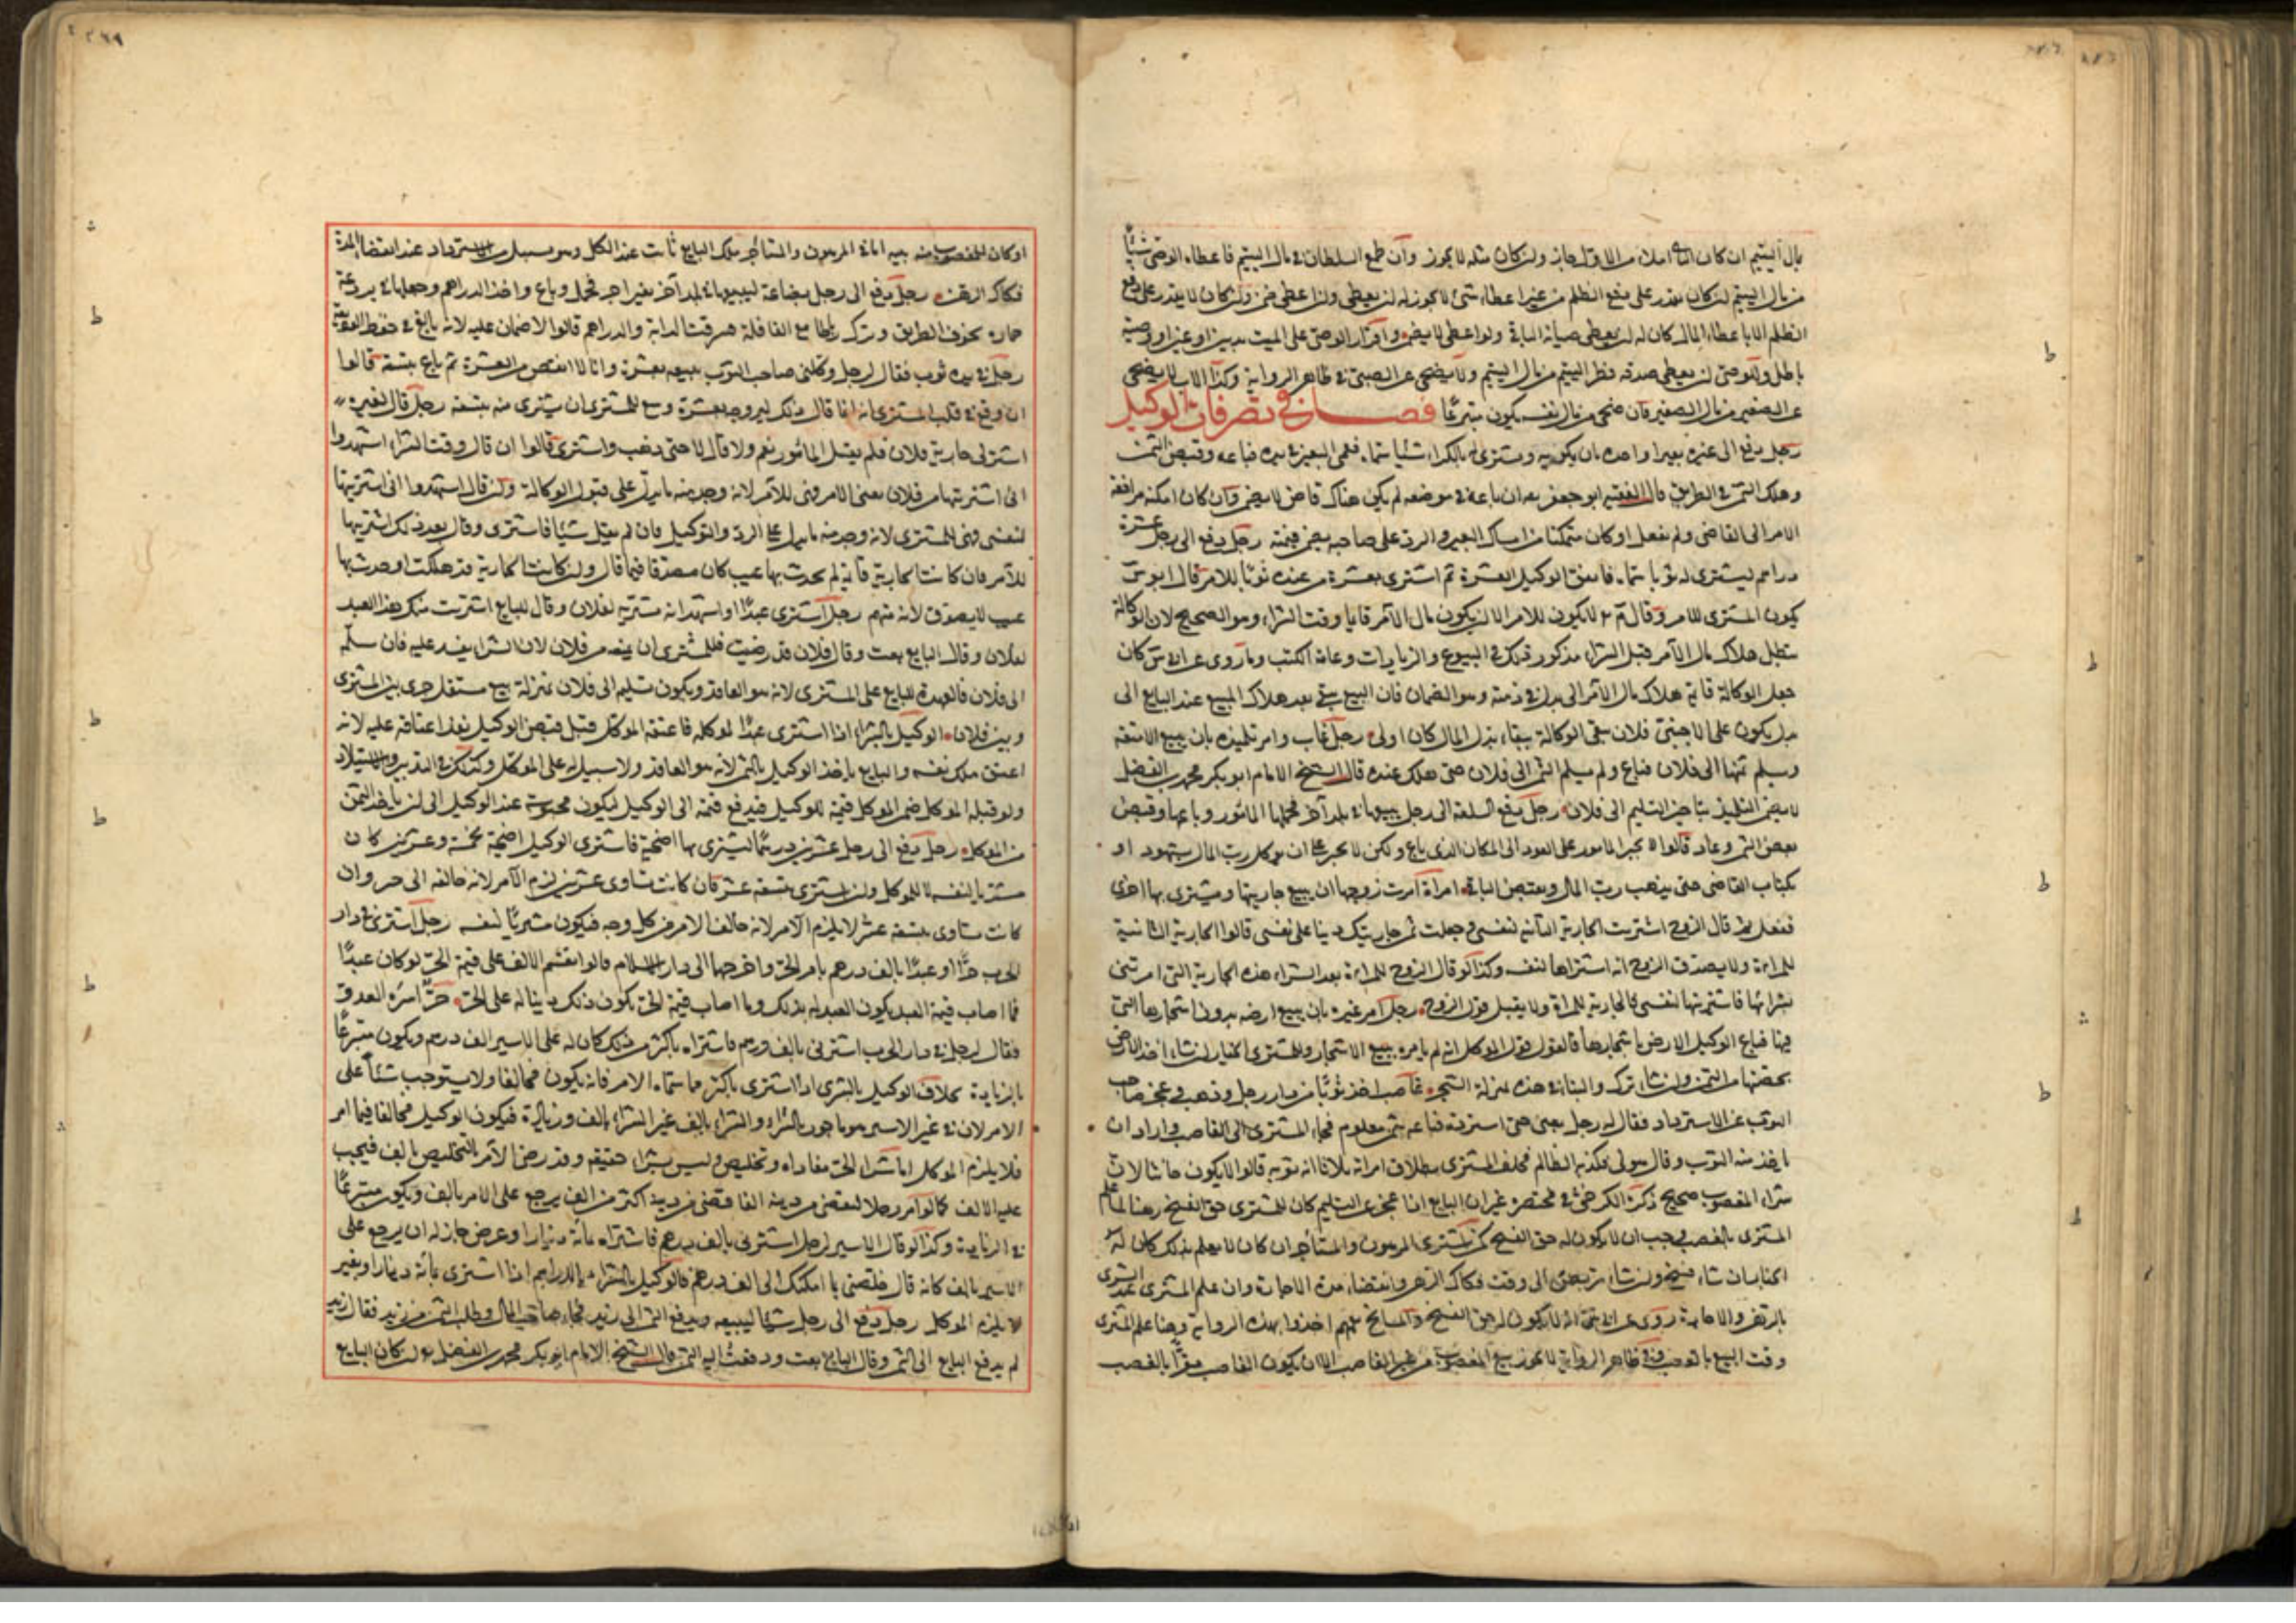 بمال اليتيم ان كان املاء من الاول جاز وان كان مثله لا يجوز وان طمع السلطان في مال اليتيم فاعطاه الوصي شيئا
من مال اليتيم ان كان يقدر على دفع الظلم من غير اعطاء شئ لا يجوز له ان يعطي وان اعطى ضمن وان كان لا يقدر على دفع
الظلم الا باعطاء المال كان له ان يعطي صيانة للباقي ولو اعطى لا يضمن واقرار الوصي على الميت بدين او عين او وصية
باطل وللوصي ان يعطي صدقة فطر اليتيم من مال اليتيم ولا يضحي عن الصبي في ظاهر الرواية وكذا الاب لا يضحي
عن الصغير من مال الصغير فان ضحى من مال نفسه يكون متبرعا فصل في تصرفات الوكيل
رجل دفع الى غيره بعيرا وامره بان يكريه ويشتري له بالكراء شيئا سماه فعمي البعير في يده فباعه وقبض الثمن
وهلك الثمن في الطريق قال الفقيه ابو جعفر رحمه ان باعه في موضعه لم يكن هناك قاض لا يضمن وان كان امكنه مرافعة
الامر الى القاضي ولم يفعل او كان متمكنا من امساك البعير والرد على صاحبه يضمن قيمته رجل دفع الى رجل عشرة
دراهم ليشتري له ثوبا سماه فانفق الوكيل العشرة ثم اشترى بعشرة من عنده ثوبا للامر قال ابو س
يكون المشترى للامر وقال م لا يكون للامر الا ان يكون مال الآمر قايما وقت الشراء وهو الصحيح لان الوكالة
تبطل بهلاك مال الآمر قبل الشراء مذكور ذلك في البيوع والزيادات وعامة الكتب وما روي عن ابي س كان
جعل الوكالة قايمة بهلاك مال الآمر الى بدل في ذمته وهو الضمان فان البيع يبقى بعد هلاك المبيع عند البايع الى
بدل يكون على الاجنبي فلان تبقى الوكالة ببقاء بدل المال كان اولى رجل غاب وامر تلميذه بان يبيع الامتعة
ويسلم ثمنها الى فلان فباع ولم يسلم الثمن الى فلان حتى هلك عنده قال الشيخ الامام ابو بكر محمد بن الفضل
لا يضمن التلميذ بتاخير التسليم الى فلان رجل دفع السلعة الى رجل ليبيعها في بلد آخر فحملها المامور وباعها وقبض
بعض الثمن وعاد قالوا لا يجبر المامور على العود الى المكان الذي باع ولكن لا يجبر على ان يوكل رب المال بشهود او
بكتاب القاضي حتى يذهب رب المال ويقبض الباقي امراة امرت زوجها ان يبيع جاريتها ويشتري بها اخرى
ففعل ثم قال الزوج اشتريت الجارية الثانية لنفسي وجعلت ثمن جاريتك دينا على نفسي قالوا الجارية الثانية
للمراة ولا يصدق الزوج انه اشتراها لنفسه وكذا لو قال الزوج للمراة بعد الشراء هذه الجارية التي امرتني
بشرائها فاشتريتها لنفسي فالجارية للمراة ولا يقبل قول الزوج رجل امر غيره بان يبيع ارضه بدون اشجارها التي
فيها فباع الوكيل الارض باشجارها فالقول قول الموكل انه لم يامره ببيع الاشجار والمشتري بالخيار ان شاء اخذ الارض
بحصتها من الثمن وان شاء ترك والبناء في هذه بمنزلة الشجر غاصب اخذ ثوبا من دار رجل وذهب فعجز صاحب
الثوب عن الاسترداد فقال له رجل بعني حتى استرده فباعه بثمن معلوم فجاء المشتري الى الغاصب واراد ان
ياخذ منه الثوب وقال هو لي فكذبه الظالم فحلف المشتري بطلاق امراته ثلاثا انه ثوبه قالوا لا يكون حانثا لان
شراء المغصوب صحيح ذكره الكرخي في مختصره غير ان البايع اذا عجز عن التسليم كان للمشتري حق الفسخ
المشتري بالغصب يجب ان لا يكون له حق الفسخ كمن يشتري المرهون والمستاجر ان كان لا يعلم بذلك كان له
الخيار ان شاء فسخ وان شاء تربص الى وقت فكاك الرهن وانقضاء مدة الاجارة وان علم المشتري عند الشرى
بالرهن والاجارة روي عن انه لا يكون له حق الفسخ والمشايخ اخذوا بهذه الرواية وهنا علم المشتري
وقت البيع بالغصب في ظاهر الرواية لا يجوز بيع المغصوب من غير الغاصب الا ان يكون الغاصب مقرا بالغصب
او كان للمغصوب منه بينة اما في المرهون والمستأجر ملك البايع ثابت عند الكل وهو بسبيل من الاسترداد عند انقضاء المدة
فكاك الرهن رجل دفع الى رجل بضاعة ليبيعها في بلد آخر بغير اجر فحمل وباع واخذ الدراهم وجعلها في بردعة
حماره بخوف الطريق وترك مع القافلة فسرقت الدابة والدراهم قالوا لا ضمان عليه لانه بالغ في حفظ
رجل في يده ثوب فقال لرجل وكلني صاحب الثوب ببيعه بعشرة وانا لا انقص من العشرة ثم باع بتسعة قالوا
ان وقع في قلب المشتري انه انما قال ذلك ليروجه بعشرة وسع للمشتري ان يشتري منه بتسعة رجل قال لغيره
اشتر لي جارية فلان فلم يقل المأمور نعم ولا قال لا حتى ذهب واشترى قالوا ان قال وقت الشراء اشهدوا
اني اشتريتها من فلان يعني الامر فهي للآمر لانه وجد منه ما يدل على قبول الوكالة وان قال اشهدوا اني اشتريتها
لنفسي فهي للمشتري لانه وجد منه ما يدل على الرد والتوكيل فان لم يقل شيئا فاشترى وقال بعد ذلك اشتريتها
للآمر فان كانت الجارية قايمة لم يحدث بها عيب كان مصدقا فيما قال وان كانت الجارية قد هلكت او حدث بها
عيب لا يصدق لانه متهم رجل اشترى عبدا واشهد انه مشتريه لفلان وقال للبايع اشتريت منك هذا العبد
لفلان وقال البايع بعت وقال فلان قد رضيت فللمشتري ان يمنعه من فلان لان الشراء ينفذ عليه فان سلم
الى فلان فالعهدة للبايع على المشتري لانه هو العاقد ويكون تسليمه الى فلان بمنزلة بيع مستقل جرى بين المشتري
وبين فلان الوكيل بالشراء اذا اشترى عبدا لموكله فاعتقه الموكل قبل قبض الوكيل نفذ اعتاقه عليه لانه
اعتق ملك نفسه والبايع ياخذ الوكيل بالثمن لانه هو العاقد ولا سبيل له على الموكل وكذلك في التدبير والاستيلاد
ولو قبله الموكل ضمن الموكل قيمته للوكيل فيدفع قيمته الى الوكيل ليكون محبوسة عند الوكيل الى ان ياخذ الثمن
من الموكل رجل دفع الى رجل عشرين درهما ليشتري بها اضحية فاشترى الوكيل اضحية بخمسة وعشرين كان
مشتريا لنفسه لا للموكل وان اشترى بتسعة عشر فان كانت تساوي عشرين لزم الآمر لانه خالفه الى خير وان
كانت تساوي بتسعة عشر لا يلزم الآمر لانه خالف الامر من كل وجه فيكون مشتريا لنفسه رجل اشترى في دار
الحرب حرا او عبدا بالف درهم بامر الحر واخرجها الى دار الاسلام قالوا يقسم الالف على قيمة الحر لو كان عبدا
فما اصاب قيمة العبد يكون العبد له بذلك وما اصاب قيمة الحر يكون ذلك دينا له على الحر حر اسره العدو
فقال لرجل في دار الحرب اشترني بالف درهم فاشتراه باكثر من ذلك كان له على الاسير الف درهم ويكون متبرعا
بالزيادة بخلاف الوكيل بالشرى اذا اشترى باكثر مما سماه الامر فانه يكون مخالفا ولا يستوجب شيئا على
الامر لان في غير الاسير هو مامور بالشراء والشراء بالف غير الشراء بالف وزيادة فيكون الوكيل مخالفا فيما امر
فلا يلزم الموكل اما شراء الحر مفاداه وتخليص وليس بشراء حقيقة وقد رضي الآمر بالتخليص بالف فيجب
عليه الالف كما لو امر رجلا ليقضي من دينه الفا فقضى من دينه اكثر من الف يرجع على الامر بالف ويكون متبرعا
في الزيادة وكذا لو قال الاسير لرجل اشترني بالف درهم فاشتراه بمائة دينار او عرض جاز له ان يرجع على
الاسير بالف كانه قال خلصني بما امكنك الى الف درهم فالوكيل بالشراء بالدراهم اذا اشترى بمائة دينار او بغير
لا يلزم الموكل رجل دفع الى رجل شيئا ليبيعه ويدفع الثمن الى زيد فجاء صاحب المال وطلب الثمن من زيد فقال زيد
لم يدفع البايع الي الثمن وقال البايع بعت ودفعت اليه الثمن قال الشيخ الامام ابو بكر محمد بن الفضل ان كان البايع